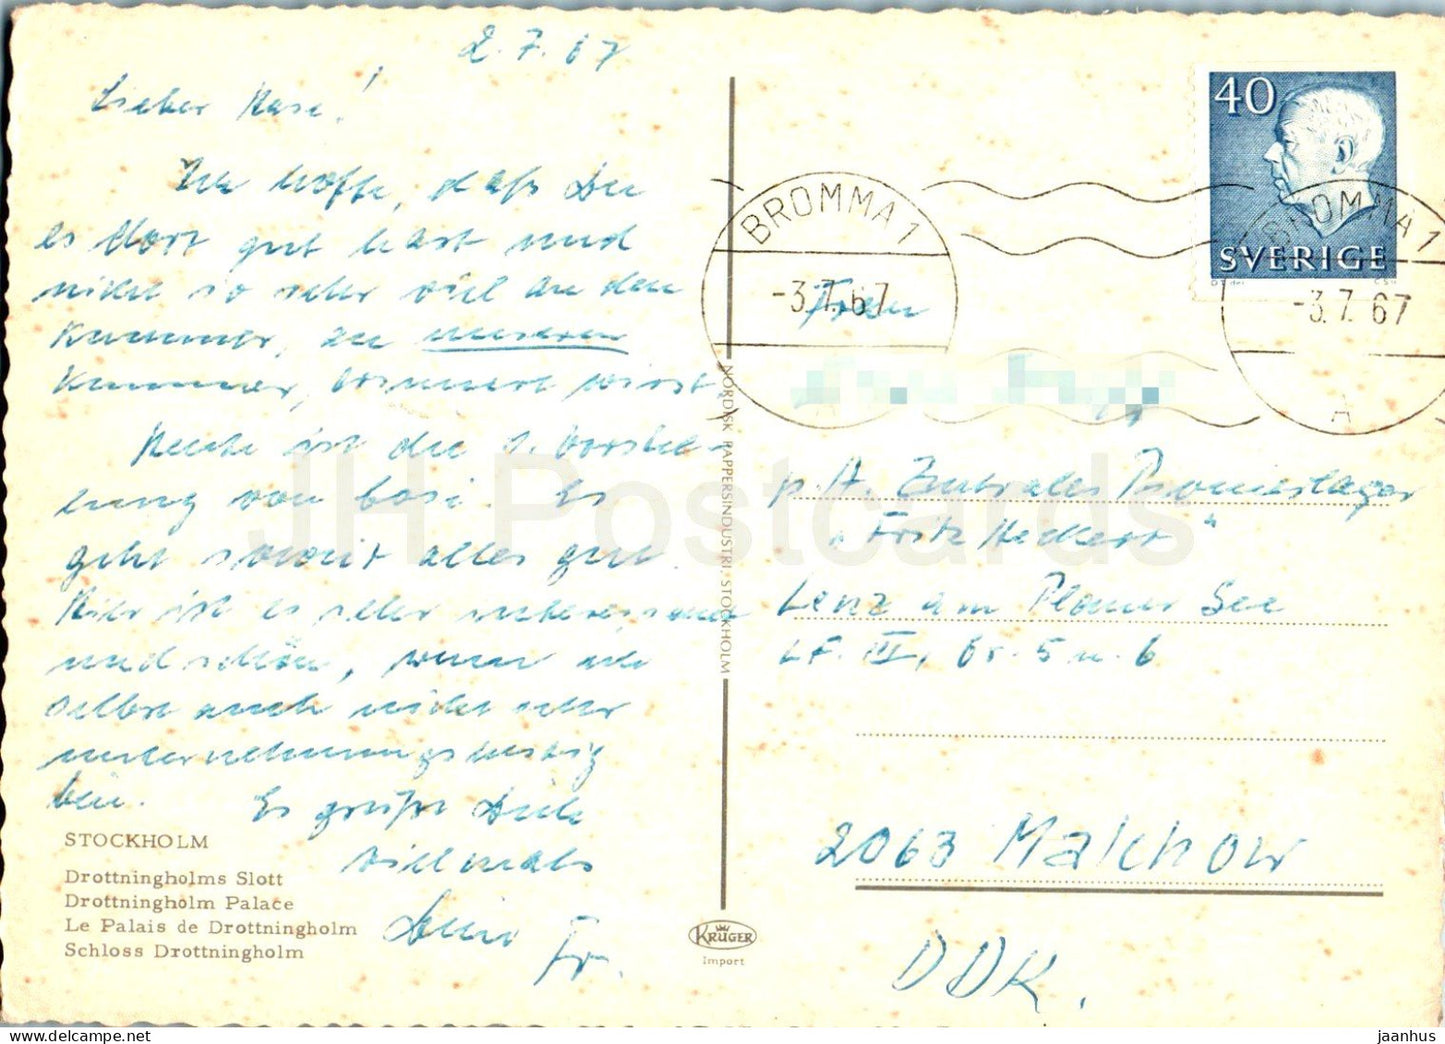 2.7.67
Lieber Hase!
Ich hoffe, daß Du
es dort gut hast und
nicht so sehr viel an den
Kummer, an unseren
Kummer, erinnert wirst.
Heute ist die 1. Vorstel-
lung von Cosi. Es
geht soweit alles gut.
Hier ist es sehr interessant
und schön, wenn ich
selbst auch nicht sehr
unternehmungslustig
bin. Es grüßt Dich
vielmals
Dein Fr.
STOCKHOLM
Drottningholms Slott
Drottningholm Palace
Le Palais de Drottningholm
Schloss Drottningholm
NORDISK PAPPERSINDUSTRI, STOCKHOLM
KRÜGER
Import
40
SVERIGE
BROMMA 1
-3.7.67
A
BROMMA 1
-3.7.67
A
p. A. Zentrales Pionierlager
"Fritz Heckert"
Lenz am Plauer See
LF. III, Gr. 5 u. 6
2063 Malchow
DDR.
JH Postcards
jaanhus | delcampe.net